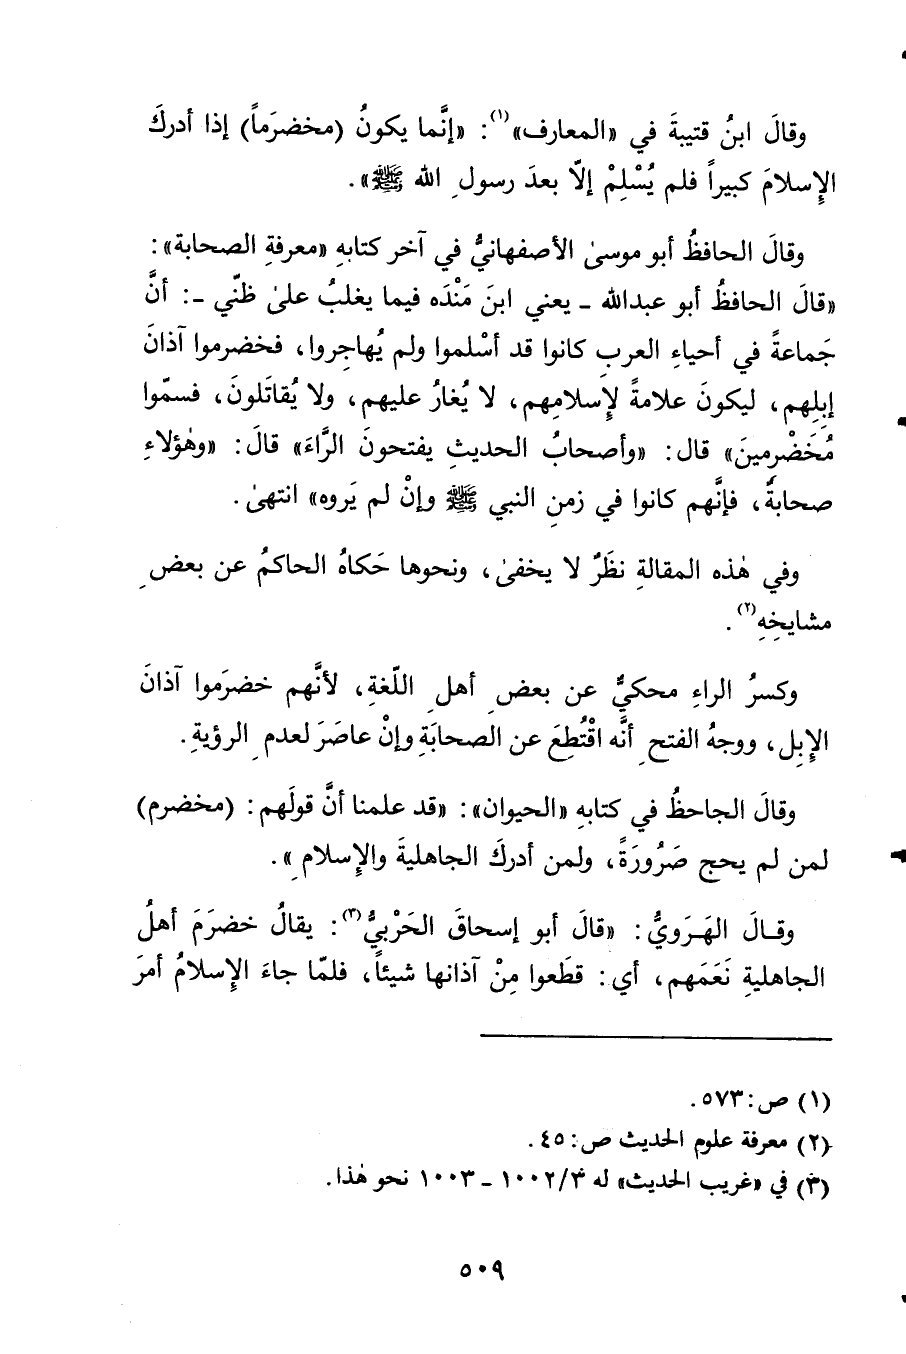 وقالَ ابنُ قتيبةَ في «المعارف»(١): «إنَّما يكونُ (مخضرَماً) إذا أدركَ
الإِسلامَ كبيراً فلم يُسْلِمْ إلاّ بعدَ رسولِ الله ﷺ».
وقالَ الحافظُ أبو موسىٰ الأصفهانيُّ في آخر كتابهِ «معرفةِ الصحابة»:
«قالَ الحافظُ أبو عبدالله ـ يعني ابنَ مَنْدَه فيما يغلبُ علىٰ ظنّي ـ: أنَّ
جَماعةً في أحياءِ العربِ كانوا قد أسْلموا ولم يُهاجِروا، فخضرموا آذانَ
إبلِهم، ليكونَ علامةً لإِسلامِهم، لا يُغارُ عليهم، ولا يُقاتَلونَ، فسمّوا
مُخَضْرِمينَ» قال: «وأصحابُ الحديثِ يفتحونَ الرَّاءَ» قالَ: «وهٰؤلاءِ
صحابةٌ، فإنَّهم كانوا في زمنِ النبي ﷺ وإنْ لم يَروه» انتهىٰ.
وفي هٰذه المقالةِ نظَرٌ لا يخفىٰ، ونحوها حَكاهُ الحاكمُ عن بعضِ
مشايخِهِ(٢).
وكسرُ الراءِ محكيٌّ عن بعضِ أهلِ اللّغةِ، لأنَّهم خضرَموا آذانَ
الإِبل، ووجهُ الفتحِ أنَّه اقْتُطِعَ عن الصحابَةِ وإنْ عاصَرَ لعدمِ الرؤيةِ.
وقالَ الجاحظُ في كتابهِ «الحيوان»: «قد علمنا أنَّ قولَهم: (مخضرم)
لمن لم يحج صَرُورَةً، ولمن أدركَ الجاهليةَ والإِسلامِ».
وقـالَ الهَـرَويُّ: «قالَ أبو إسحاقَ الحَرْبيُّ(٣): يقالُ خضرَمَ أهلُ
الجاهليةِ نَعَمَهم، أي: قطَعوا مِنْ آذانها شيئاً، فلمّا جاءَ الإِسلامُ أمرَ
(١) ص: ٥٧٣.
(٢) معرفة علوم الحديث ص: ٤٥.
(٣) في «غريب الحديث» له ٣/ ١٠٠٢ ـ ١٠٠٣ نحو هٰذا.
٥٠٩